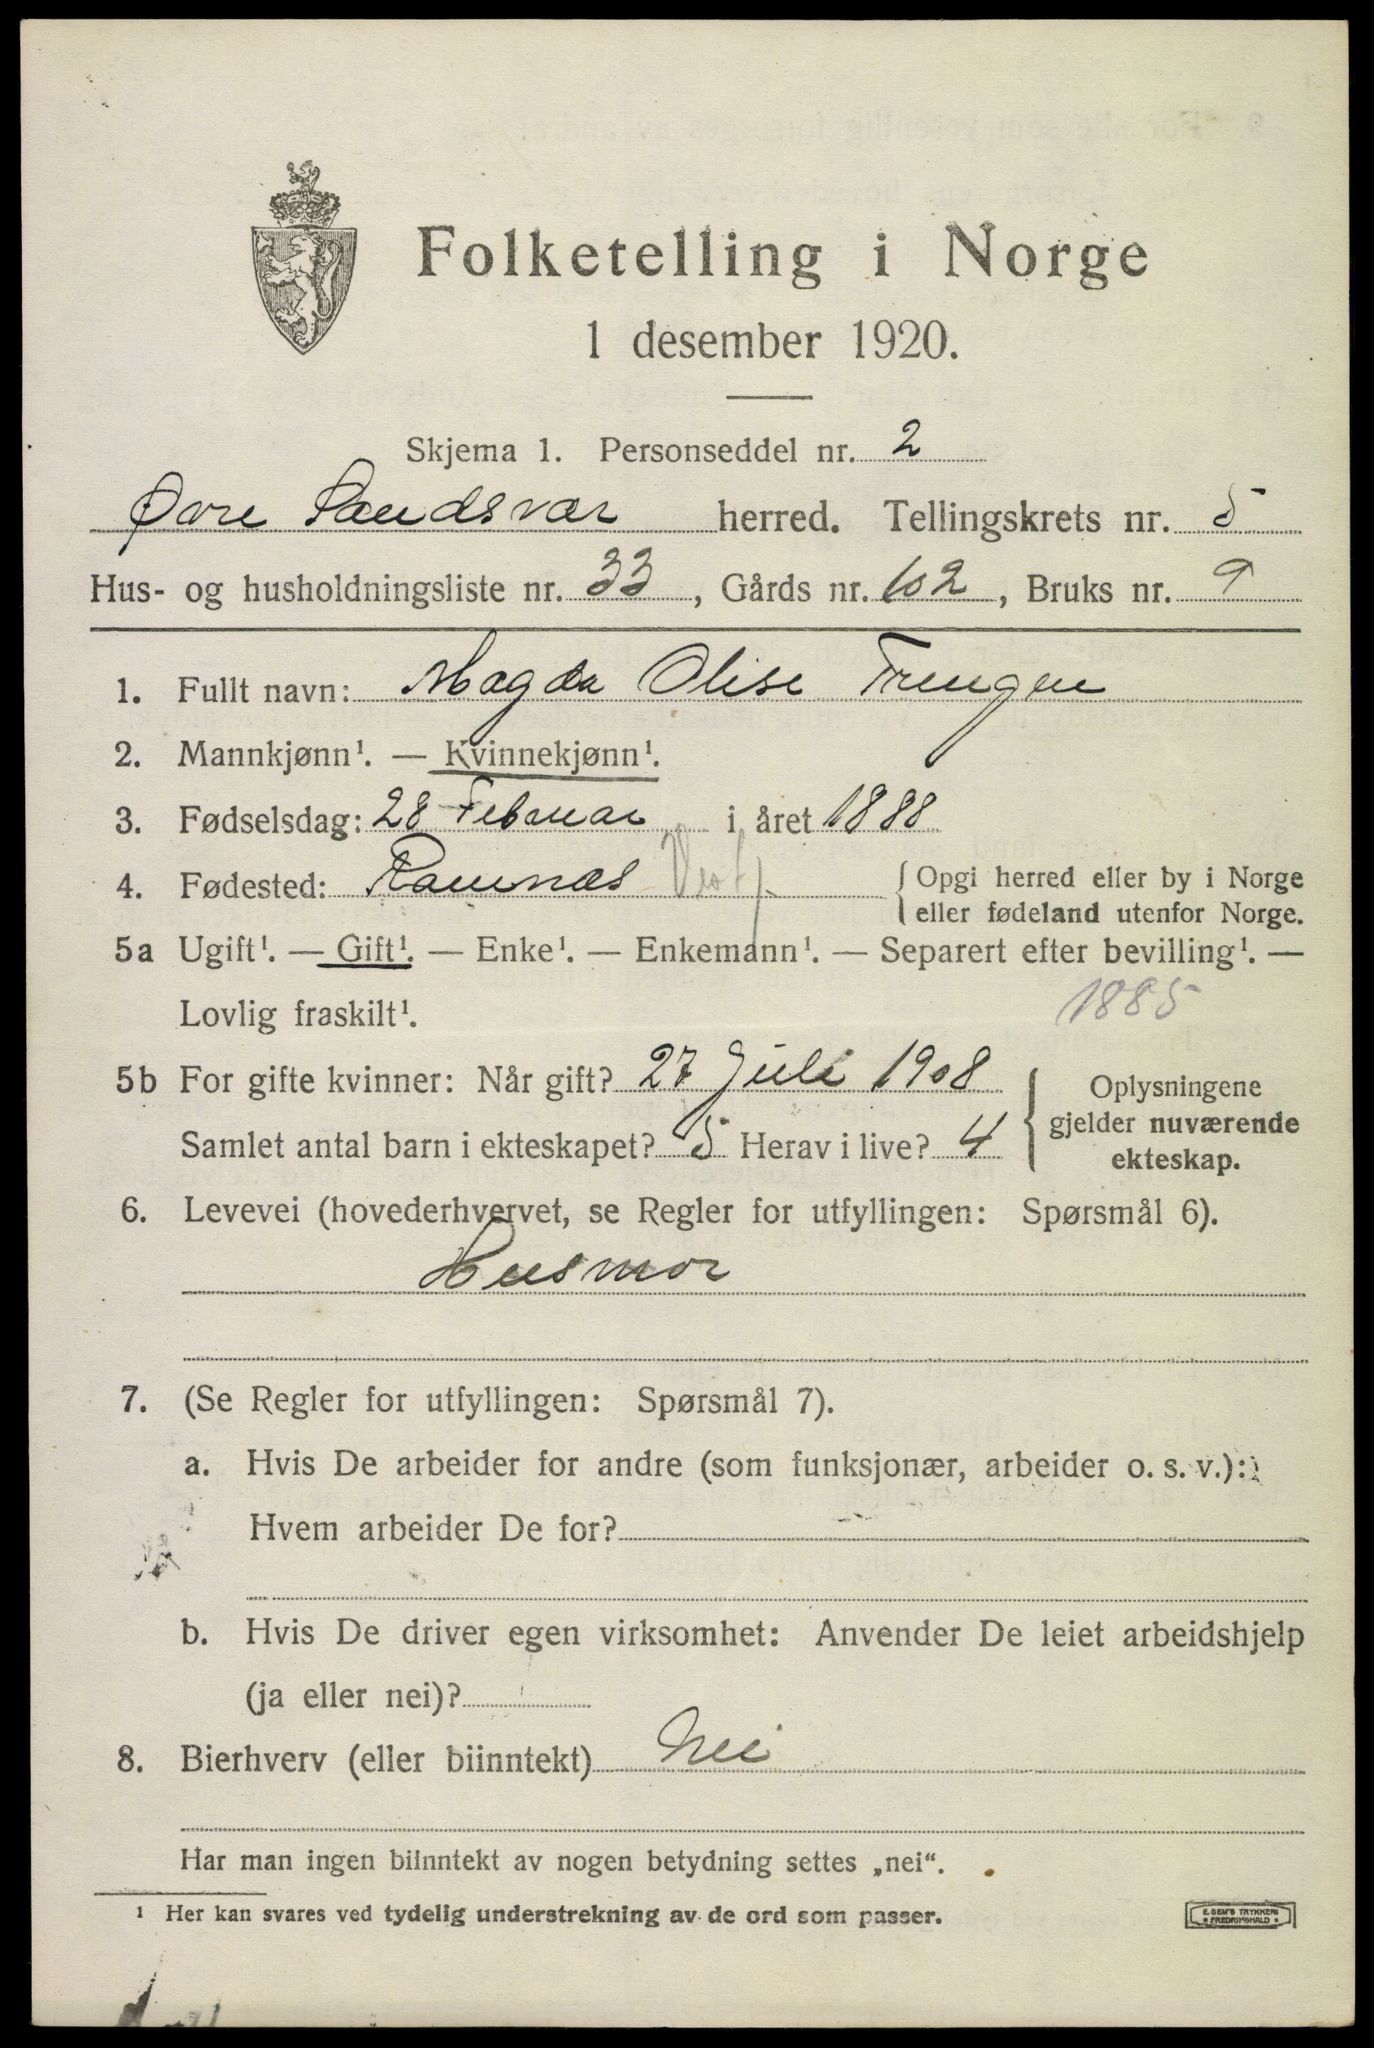 Folketelling i Norge
1 desember 1920.
Skjema 1. Personseddel nr. 2
Øvre Sandsvær herred. Tellingskrets nr. 5
Hus- og husholdningsliste nr. 33, Gårds nr. 102, Bruks nr. 9
1. Fullt navn: Magda Olise Trengen
2. Mannkjønn¹. — Kvinnekjønn¹.
3. Fødselsdag: 28 Februar i året 1888
4. Fødested: Ramnæs Vestf. { Opgi herred eller by i Norge
eller fødeland utenfor Norge.
5a Ugift¹. — Gift¹. — Enke¹. — Enkemann¹. — Separert efter bevilling¹. —
Lovlig fraskilt¹. 1885
5b For gifte kvinner: Når gift? 27 Juli 1908
Samlet antal barn i ekteskapet? 5 Herav i live? 4
} Oplysningene
gjelder nuværende
ekteskap.
6. Levevei (hovederhvervet, se Regler for utfyllingen: Spørsmål 6).
Husmor
7. (Se Regler for utfyllingen: Spørsmål 7).
a. Hvis De arbeider for andre (som funksjonær, arbeider o. s. v.):
Hvem arbeider De for?
b. Hvis De driver egen virksomhet: Anvender De leiet arbeidshjelp
(ja eller nei)?
8. Bierhverv (eller biinntekt) Nei
Har man ingen biinntekt av nogen betydning settes „nei“.
¹ Her kan svares ved tydelig understrekning av de ord som passer.
E. SEM'S TRYKKERI
FREDRIKSHALD